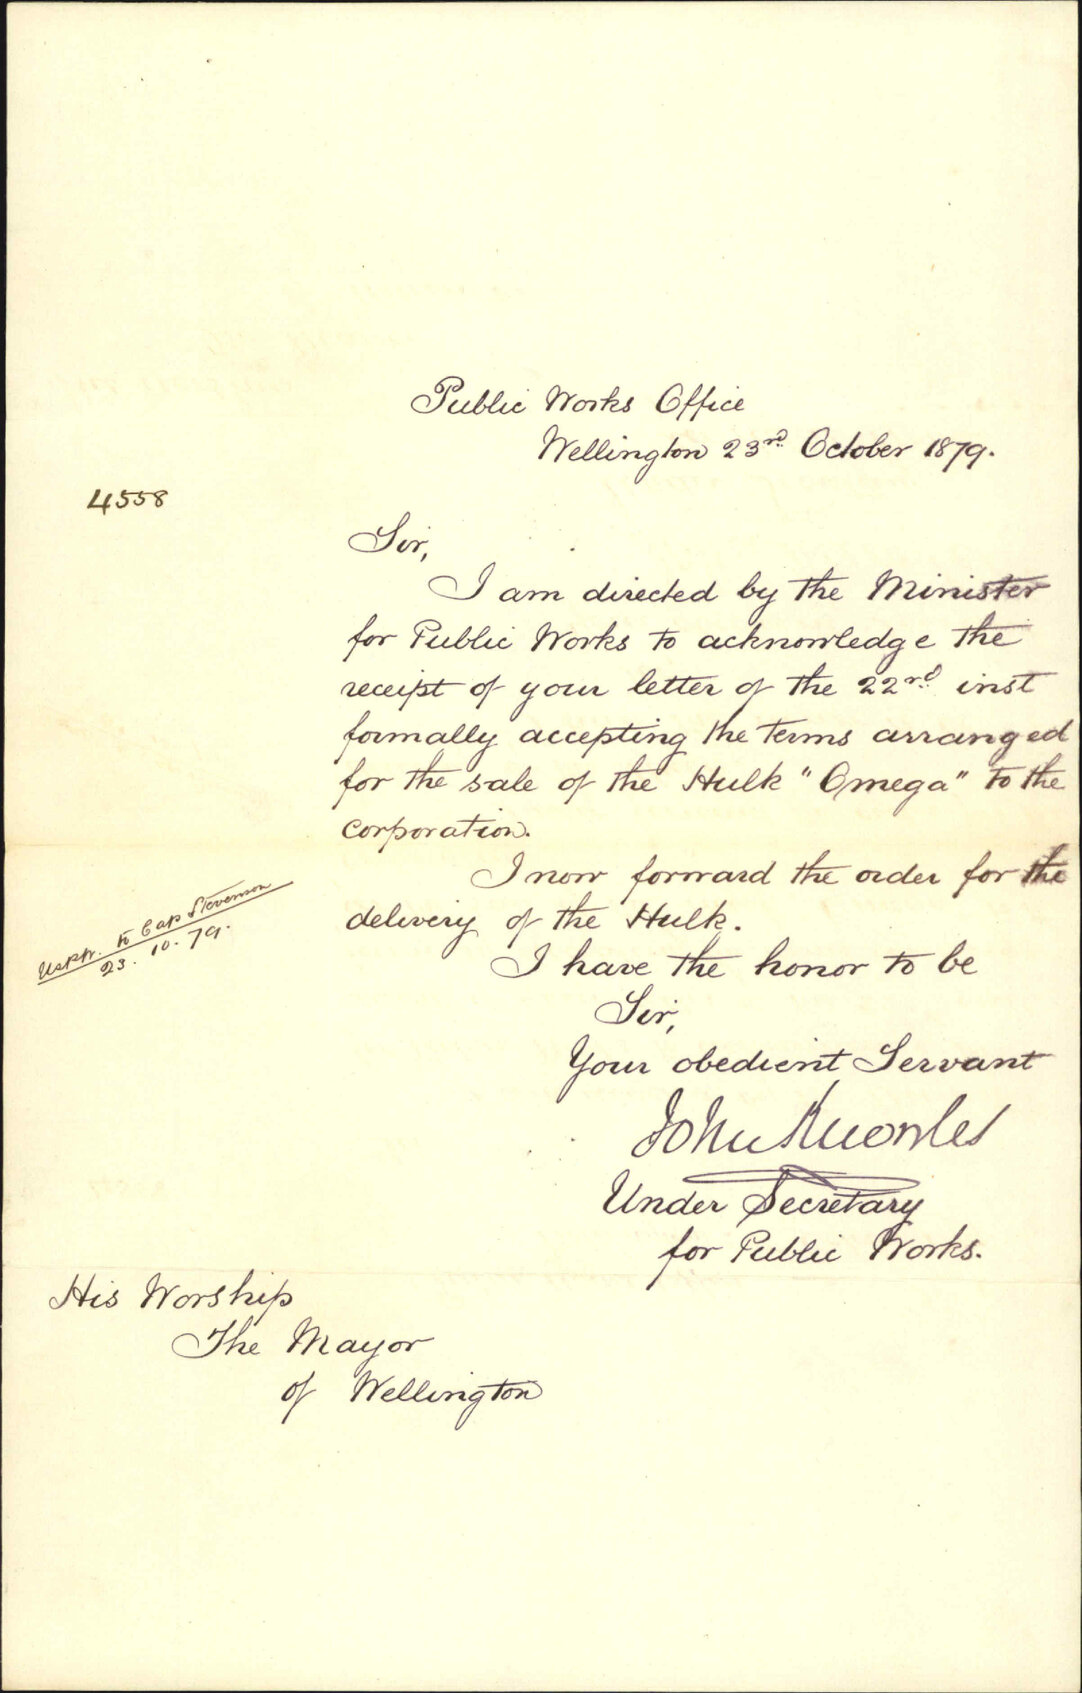 Public Works Office
Wellington 23rd. October 1879.
4558
Sir,
I am directed by the Minister
for Public Works to acknowledge the
receipt of your letter of the 22nd. inst
formally accepting the terms arranged
for the sale of the Hulk "Omega" to the
corporation.
I now forward the order for the
delivery of the Hulk.
to Cap Stevenson
23. 10. 79.
I have the honor to be
Sir,
Your obedient Servant
John Knowles
Under Secretary
for Public Works.
His Worship
The Mayor
of Wellington